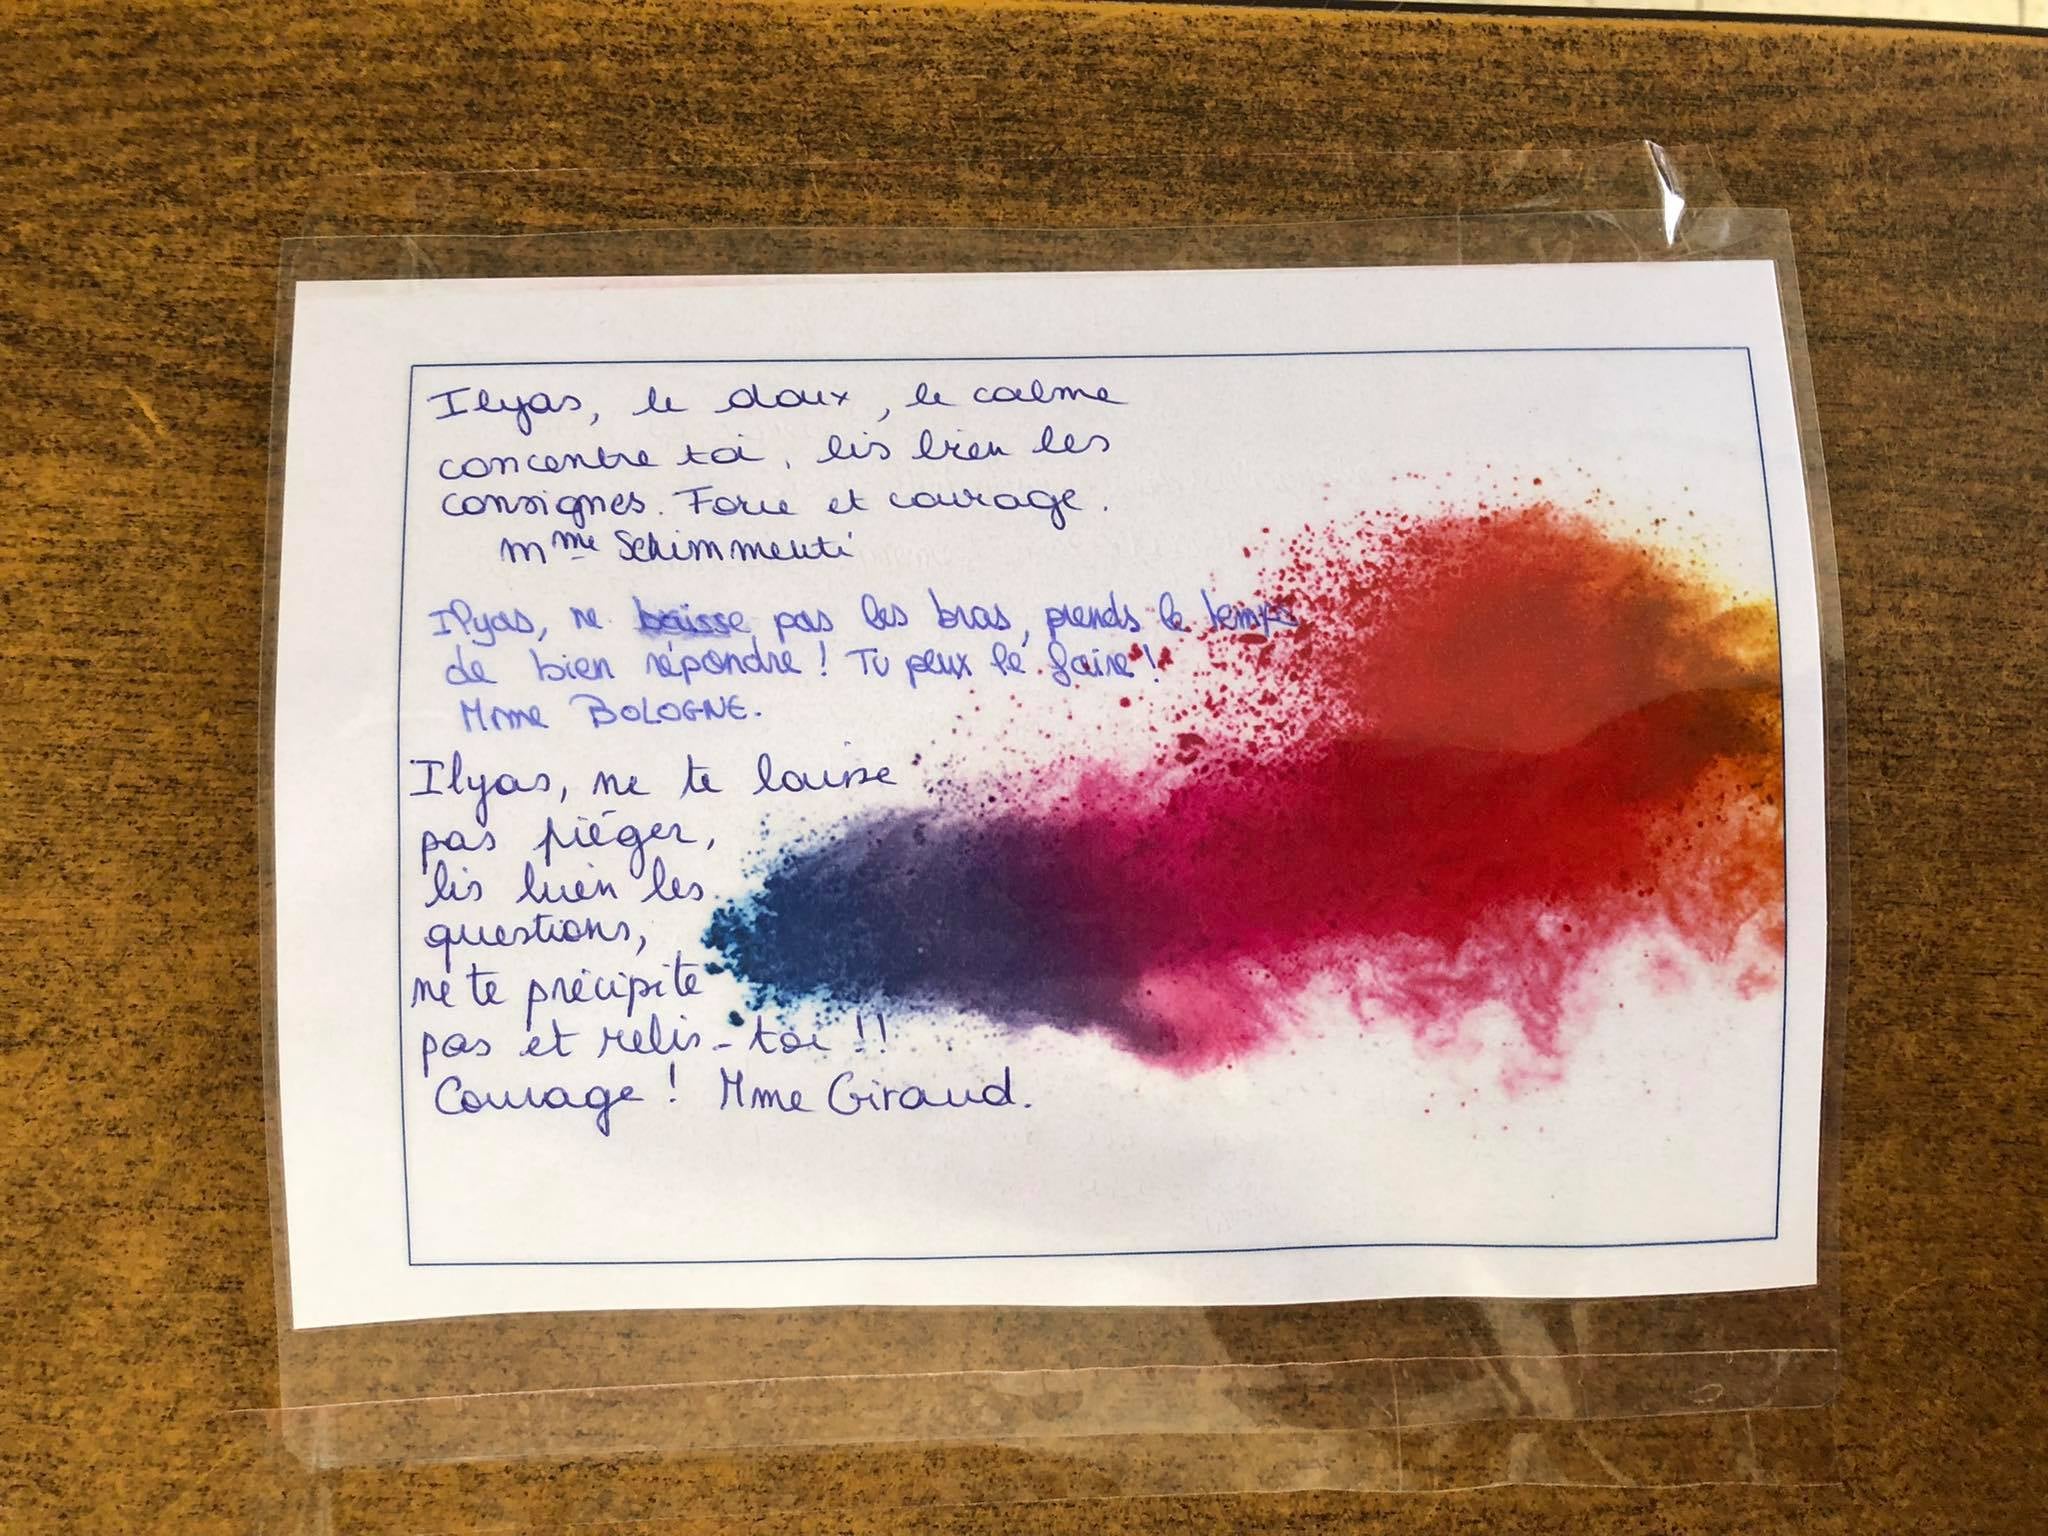 Ilyas, le doux, le calme
concentre toi, lis bien les
consignes. Force et courage.
Mme Schimmenti
Ilyas, ne baisse pas les bras, prends le temps
de bien répondre ! Tu peux le faire !
Mme BOLOGNE.
Ilyas, ne te laisse
pas piéger,
lis bien les
questions,
ne te précipite
pas et relis-toi !!
Courage ! Mme Giraud.